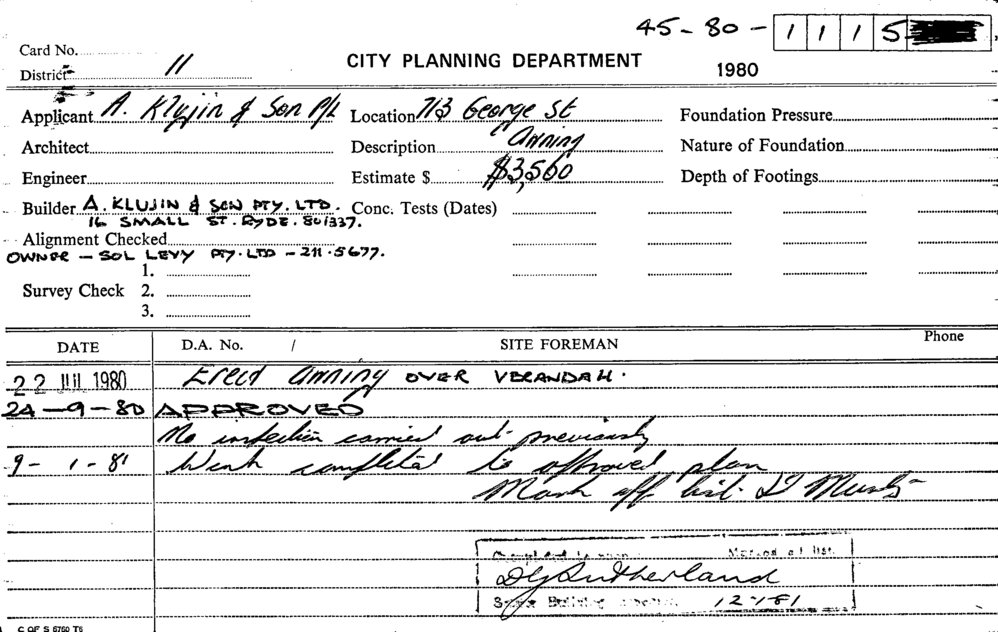 45-80-1115
Card No.
District 11
CITY PLANNING DEPARTMENT
1980
Applicant A. Klujin & Son P/L
Location 713 George St
Foundation Pressure
Architect
Description Awning
Nature of Foundation
Engineer
Estimate $ $3,560
Depth of Footings
Builder A. KLUJIN & SON PTY. LTD.
16 SMALL ST. RYDE. 801337.
Conc. Tests (Dates)
Alignment Checked
OWNER - SOL LEVY PTY. LTD - 211.5677.
1.
Survey Check 2.
3.
DATE D.A. No. / SITE FOREMAN Phone
22 JUL 1980 Erect awning OVER VERANDAH.
24-9-80 APPROVED
No inspection carried out previously
9-1-81 Work completed to approved plan
Mark off list.
Marked off list.
DG Sutherland
Building
12/1/81
C OF S 5760 T6